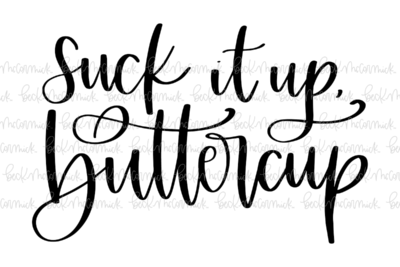 suck it up,
buttercup